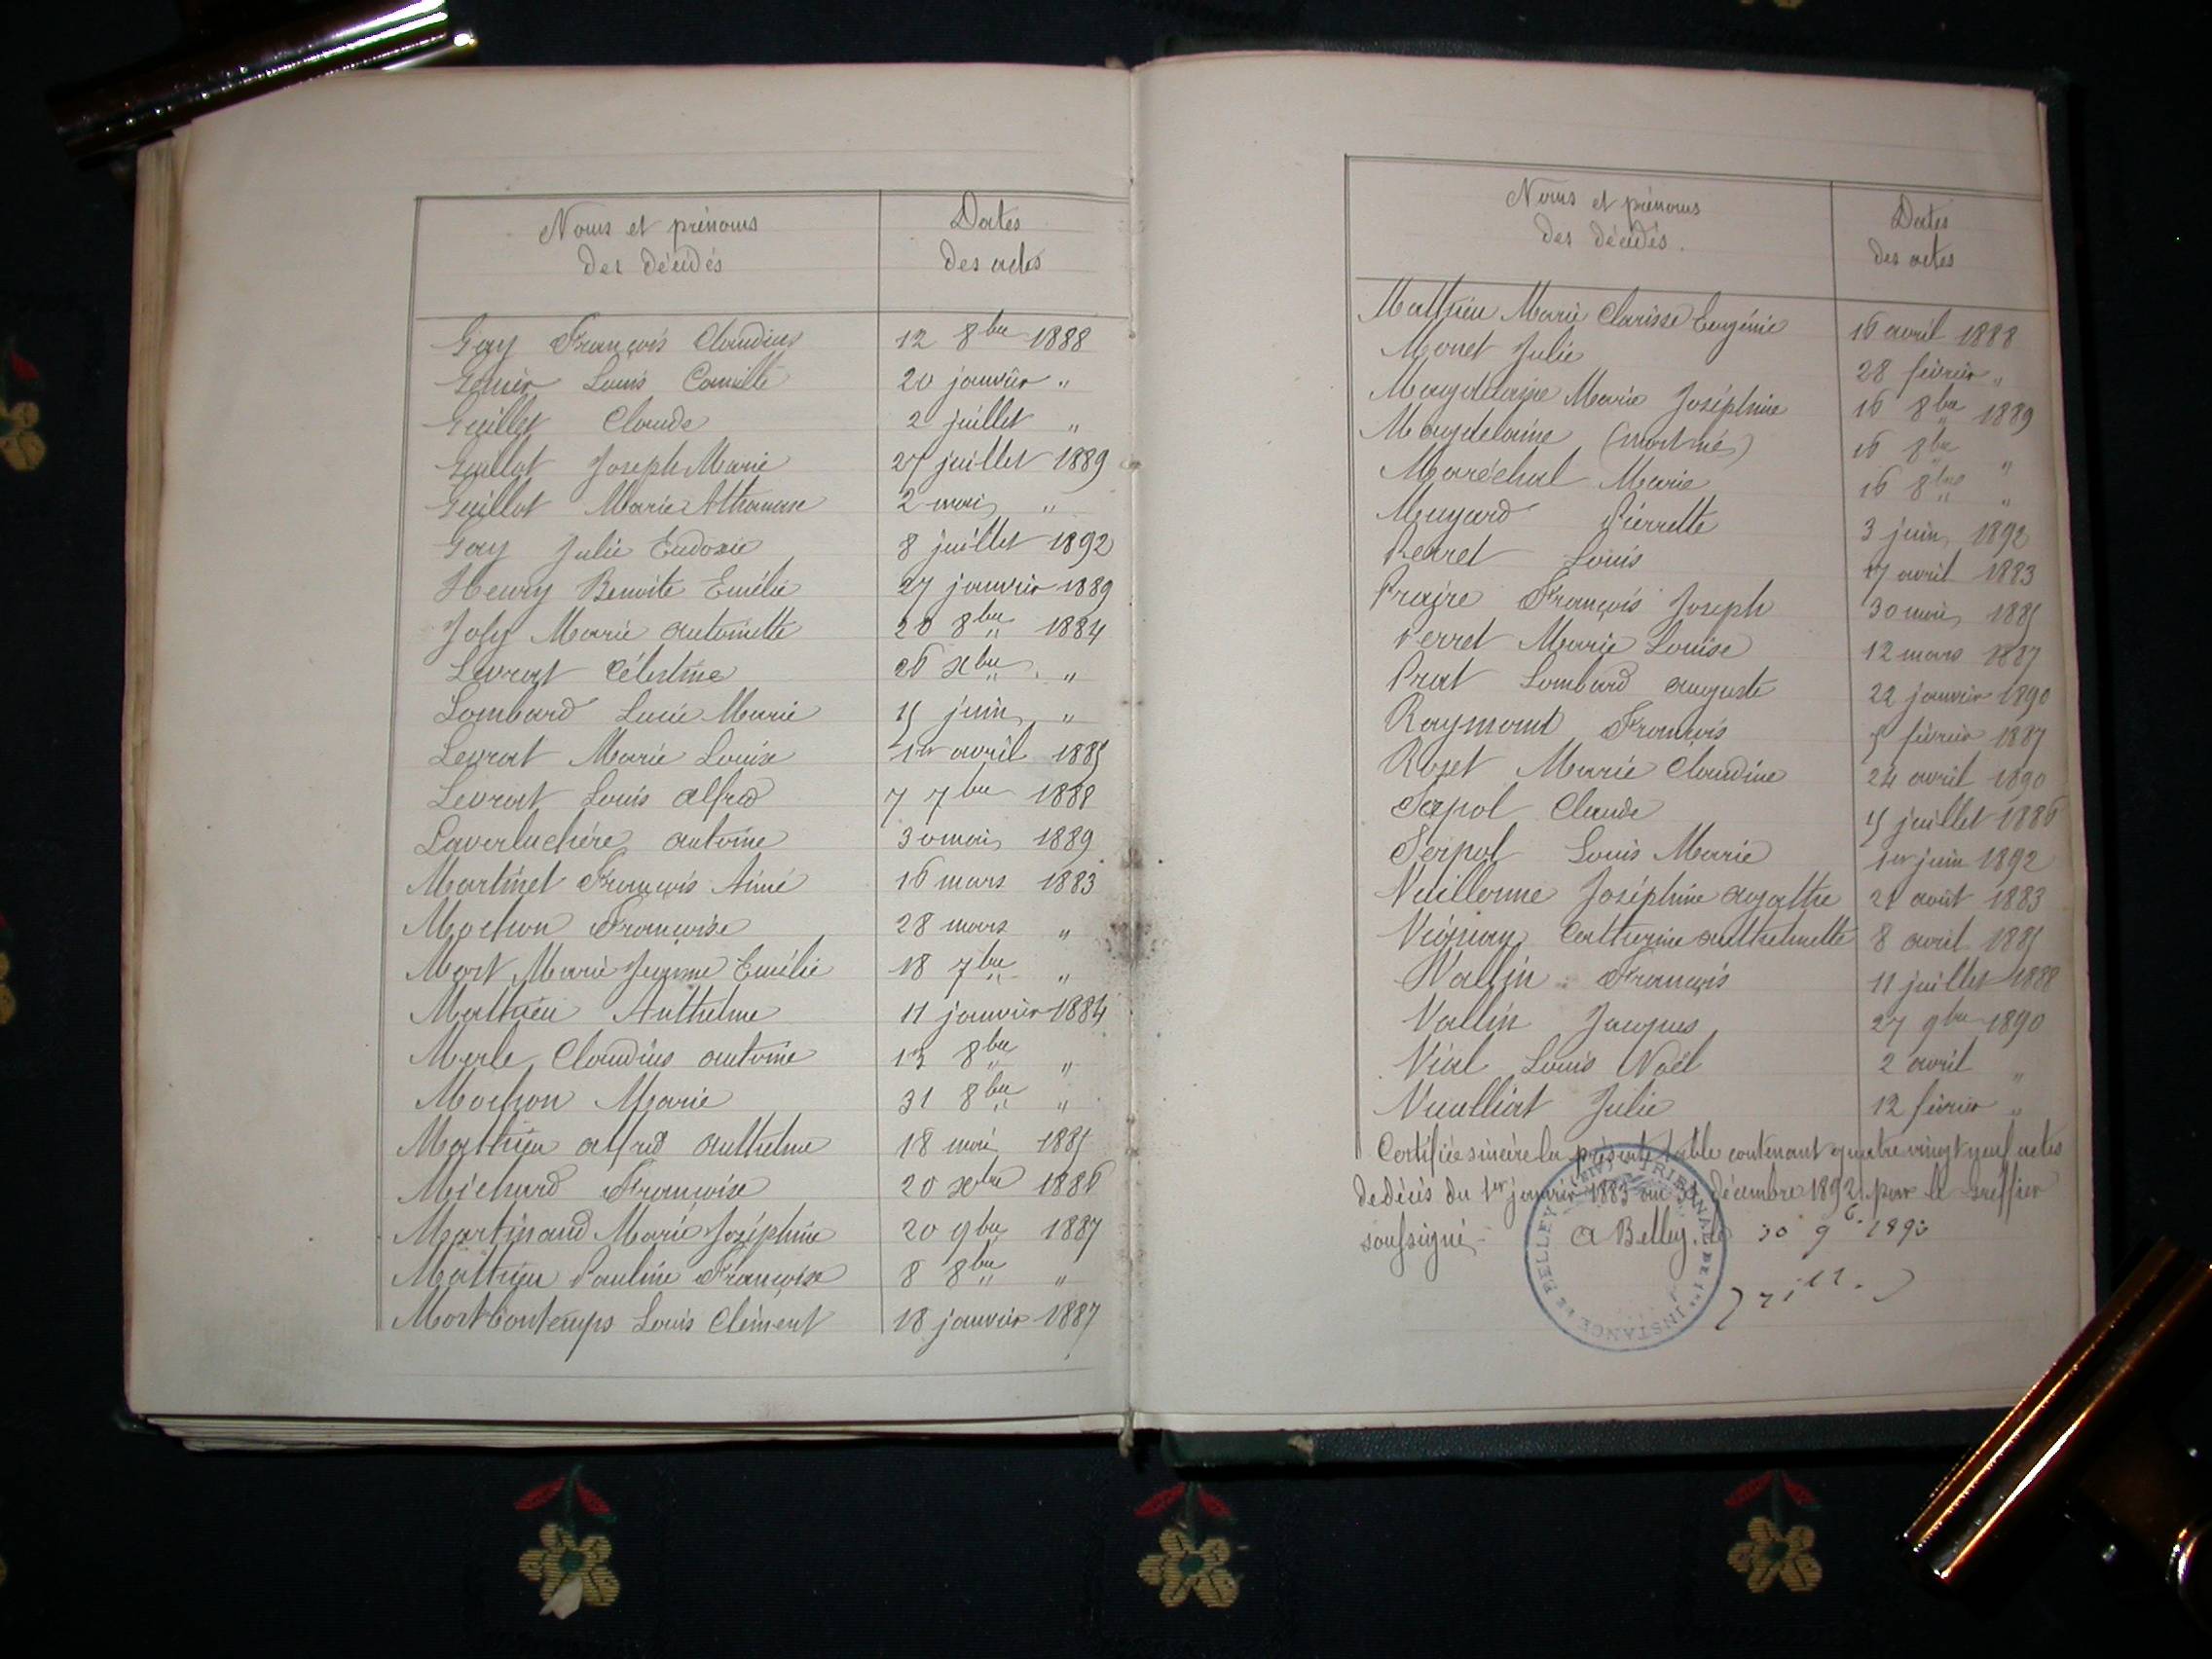 Noms et prénoms
des décédés
Dates
des actes
Gay François Claudius 12 8bre 1888
Genin Louis Camille 20 janvier "
Guillet Claude 2 juillet "
Guillot Joseph Marie 27 juillet 1889
Guillot Marie Athanase 2 mai "
Gay Julie Eudoxie 8 juillet 1892
Henry Benoite Emélie 27 janvier 1889
Joly Marie Antoinette 20 8bre 1884
Levrat Célestine 26 xbre "
Lombard Lucie Marie 15 juin "
Levrat Marie Louise 1er avril 1885
Levrat Louis Alfred 7 7bre 1888
Laverluchère Antoine 30 mai 1889
Martinet François Aimé 16 mars 1883
Mochon Françoise 28 mars "
Mort Marie Jeanne Emélie 18 7bre "
Mathieu Anthelme 11 janvier 1884
Merle Claudius Antoine 13 8bre "
Mochon Marie 31 8bre "
Mathieu Alfred Anthelme 18 mai 1885
Michard Françoise 20 xbre 1886
Martinand Marie Joséphine 20 9bre 1887
Mathieu Pauline Françoise 8 8bre "
Mort Contemps Louis Clément 18 janvier 1887
Noms et prénoms
des décédés.
Dates
des actes
Mathieu Marie Clarisse Eugénie 16 avril 1888
Monet Julie 28 février "
Magdelaine Marie Joséphine 16 8bre 1889
Magdelaine (mort né) 16 8bre "
Maréchal Marie 16 8bre "
Mugard Pierrette 3 juin 1892
Perret Louis 17 avril 1883
Praire François Joseph 30 mai 1885
Perret Marie Louise 12 mars 1887
Prat Lombard Auguste 22 janvier 1890
Raymond François 5 février 1887
Rozet Marie Claudine 24 avril 1890
Serpol Claude 15 juillet 1886
Serpol Louis Marie 1er juin 1892
Vuillerme Joséphine Agathe 21 août 1883
Vignay Catherine Anthelmette 8 avril 1885
Vallin François 11 juillet 1888
Vallin Jacques 27 9bre 1890
Vial Louis Noël 2 avril "
Vualliat Julie 12 février "
Certifiée sincère la présente table contenant quatre vingt neuf actes
de décès du 1er janvier 1883 au 31 décembre 1892 par le Greffier
soussigné. A Belley, le 30 9b. 1893
TRIBUNAL DE 1re INSTANCE DE BELLEY (AIN)